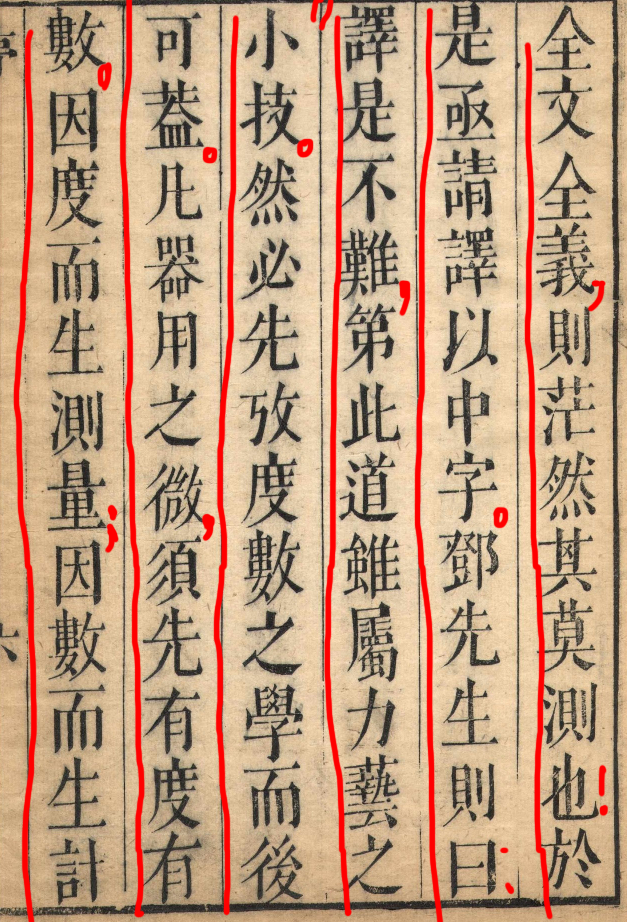 全文全義,則茫然其莫測也!於
是亟請譯以中字。鄧先生則曰:
"譯是不難,第此道雖屬力藝之
小技。然必先攷度數之學而後
可葢。凡器用之微,須先有度有
數。因度而生測量;因數而生計